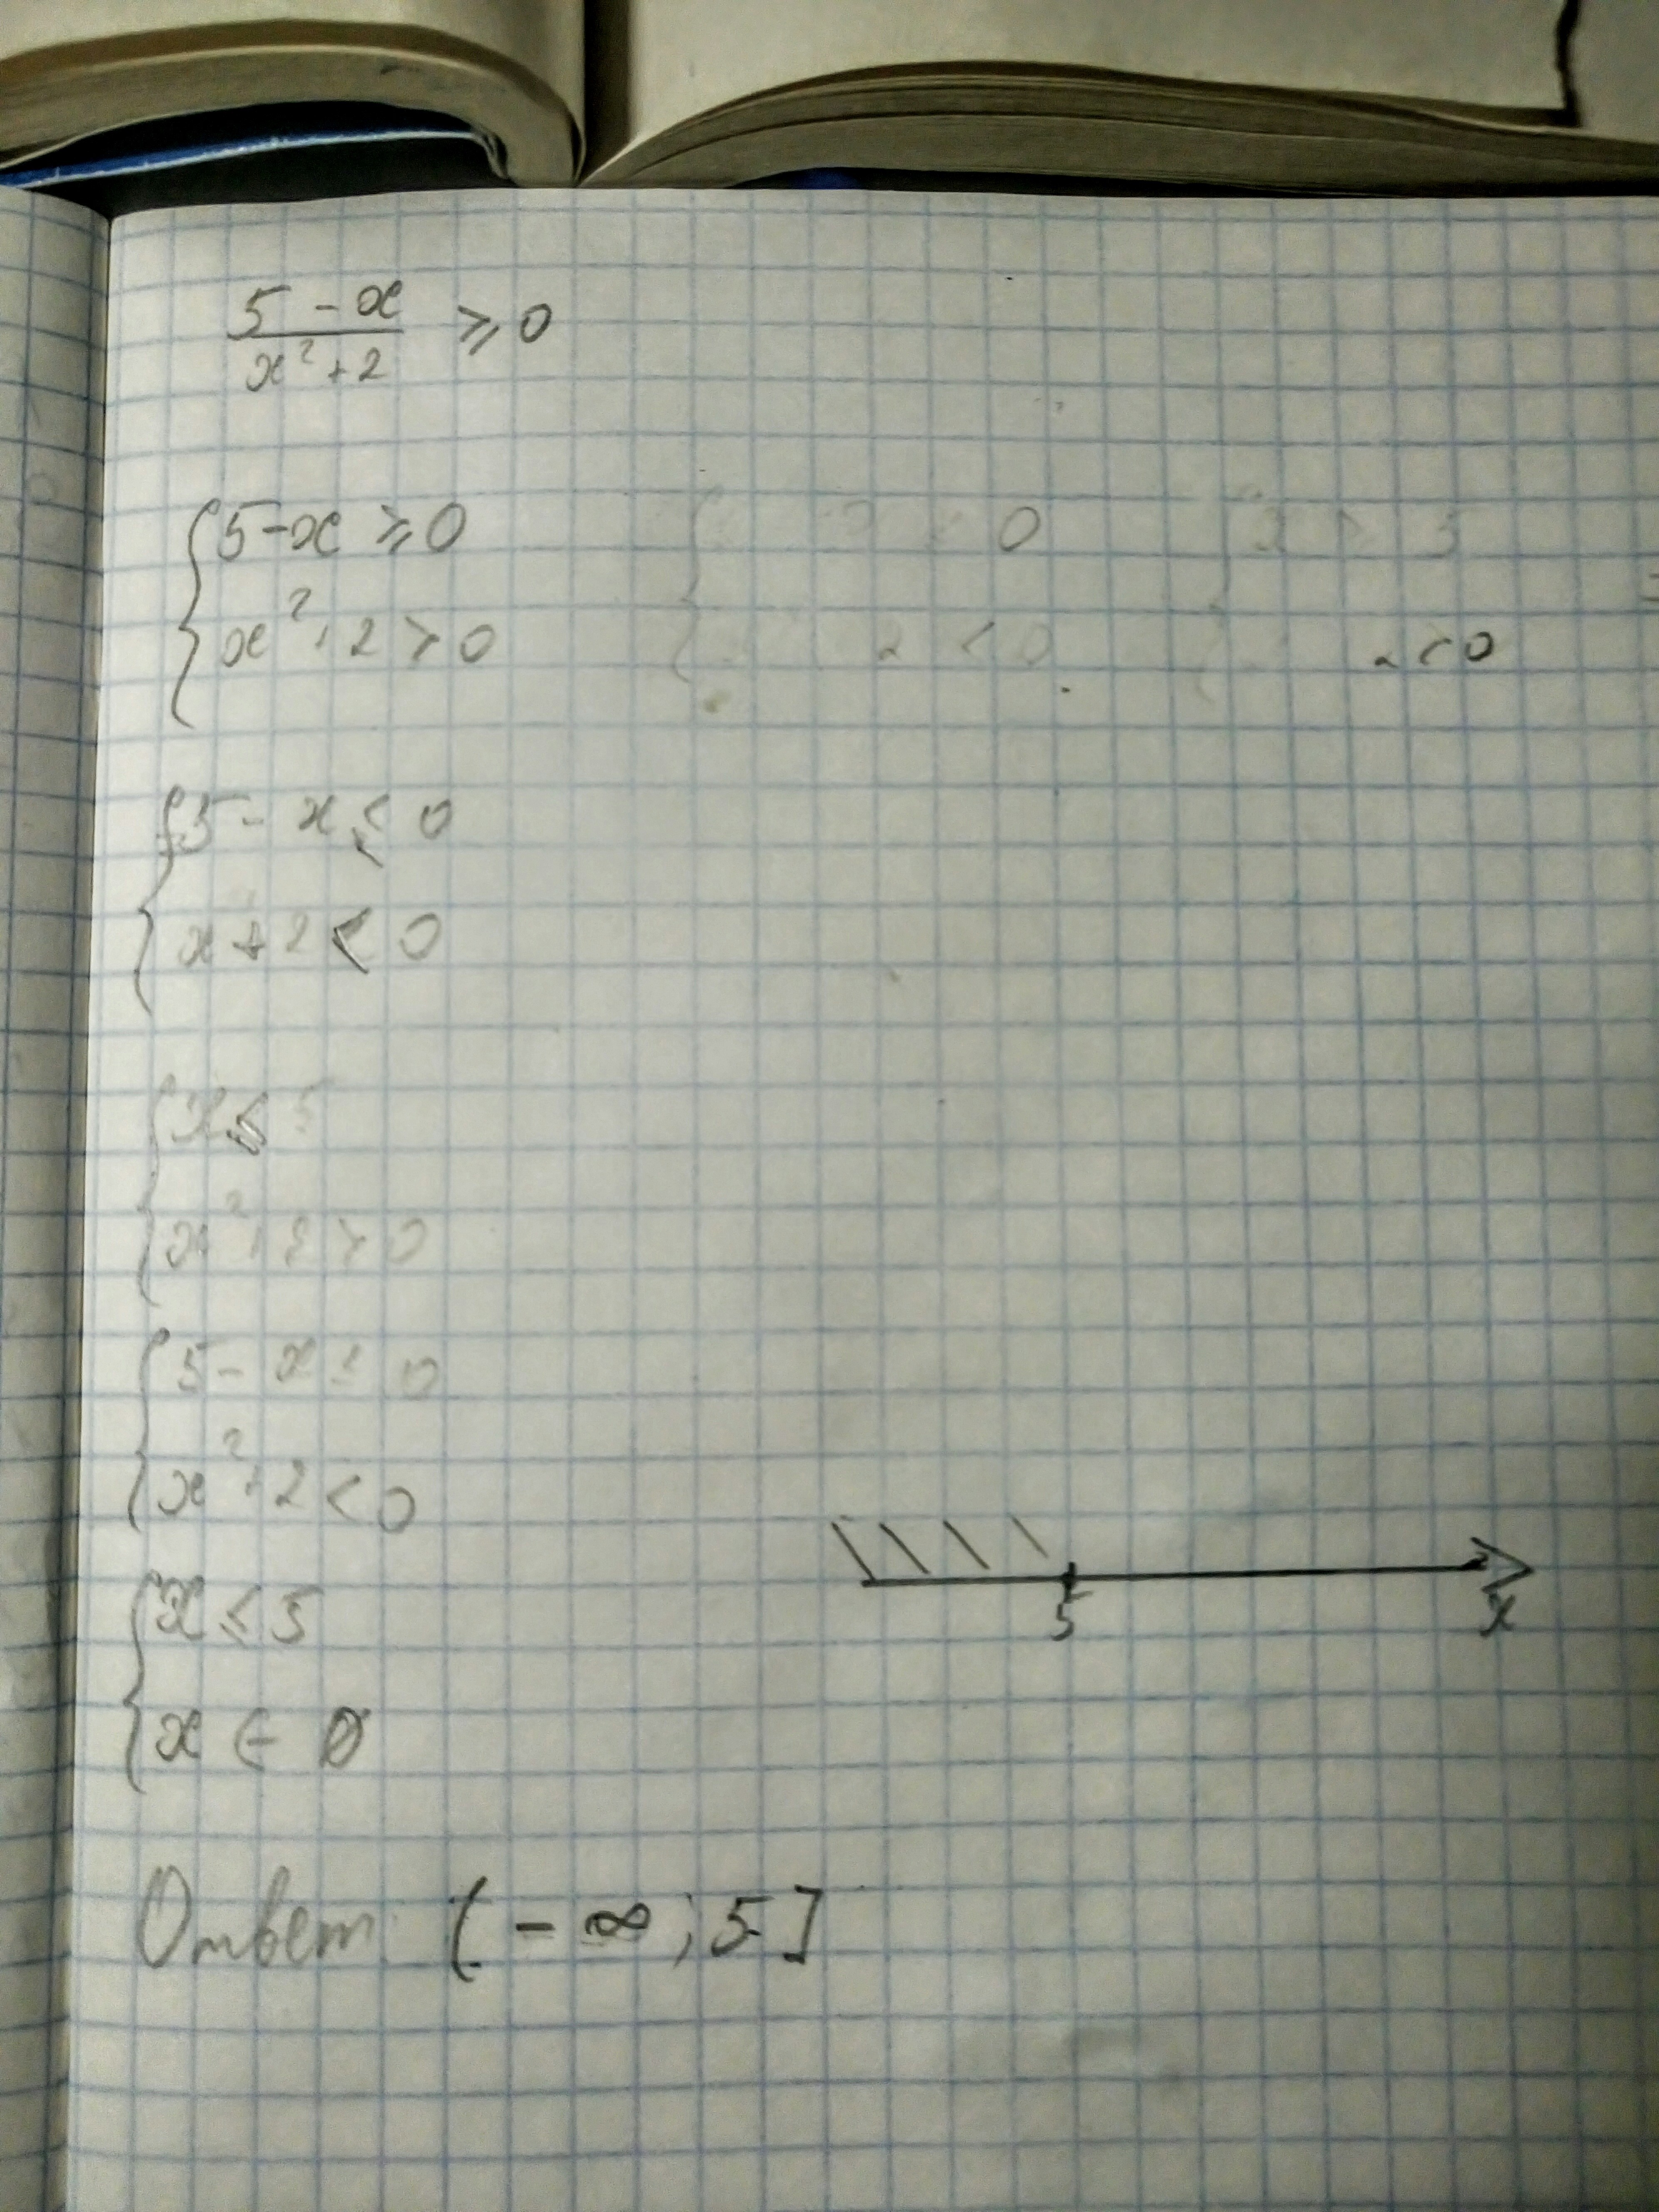 5 - x / x² + 2 ⩾ 0
{ 5 - x ⩾ 0
{ x² + 2 > 0
0
2 < 0
2 < 0
{ 5 - x ⩽ 0
{ x + 2 < 0
{ x ⩽ 5
{ x² + 2 > 0
{ 5 - x ⩽ 0
{ x² + 2 < 0
{ x ⩽ 5
{ x ∈ ∅
5 x
Ответ: (-∞; 5]